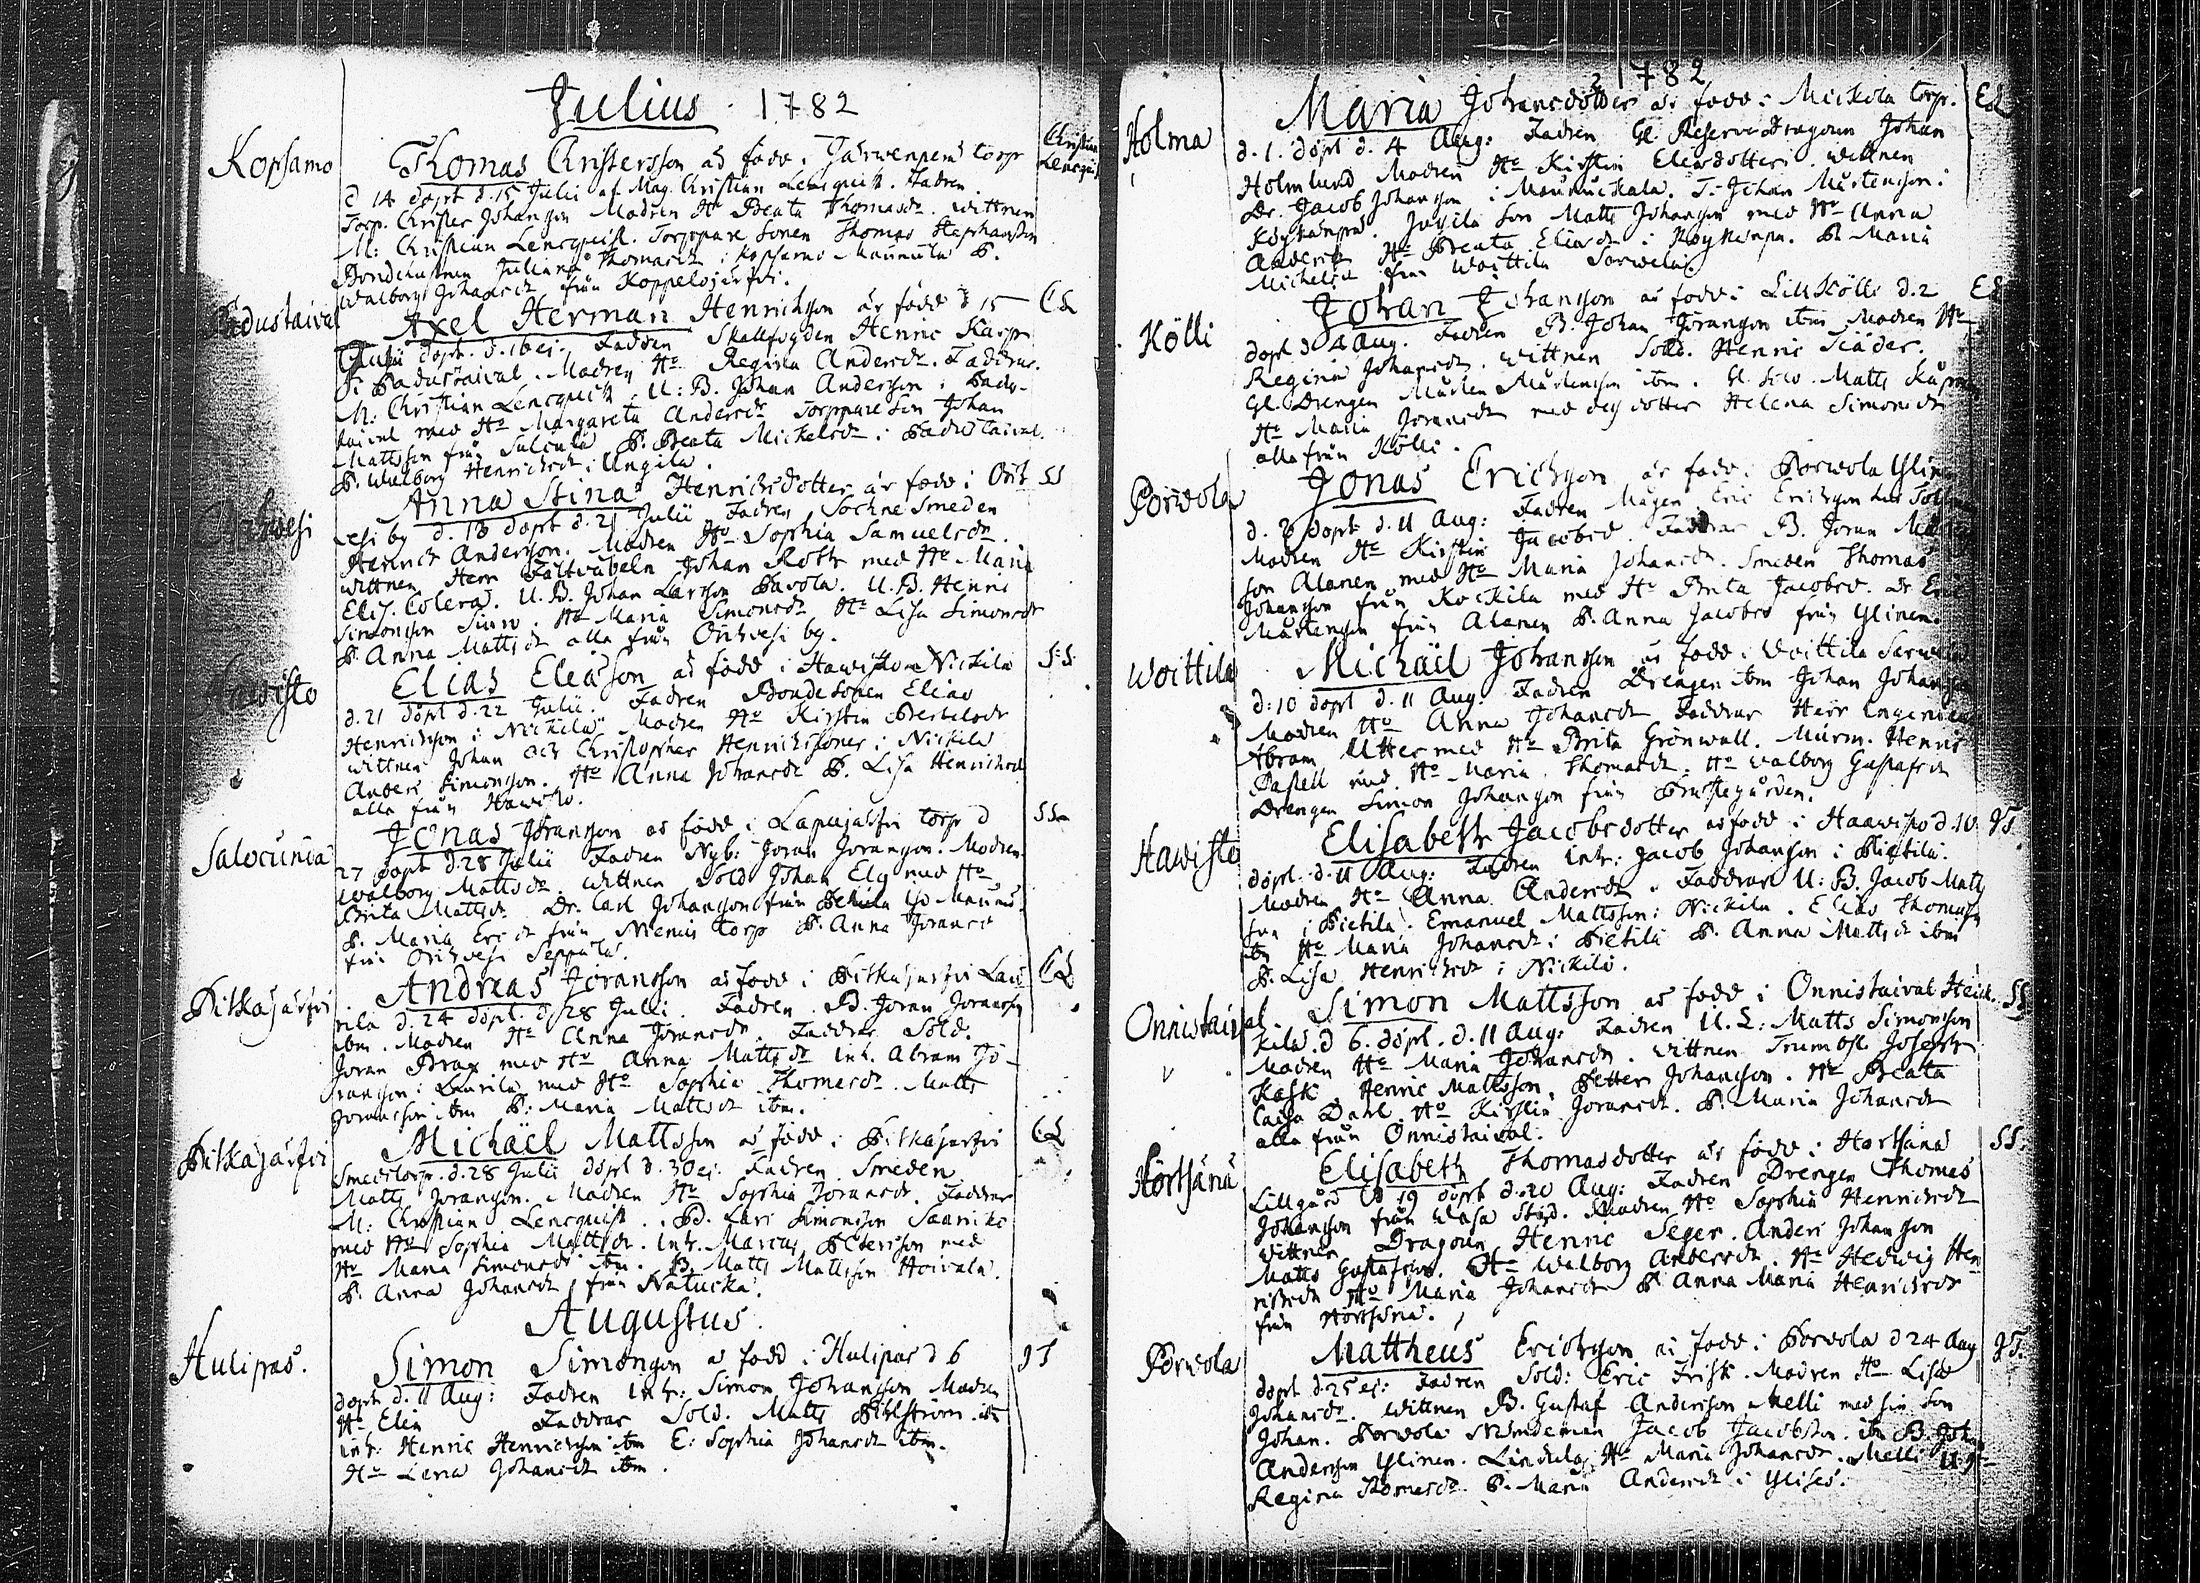 Julius 1782
Kopsamo
Thomas Christersson är född i Järwenpera torp
Christian Lencquist
d 14 döpt d. 15 Julii af Mag. Christian Lencquist. Fadren
Torp. Christer Johansson Modren Ho Beata Thomasdr. wittnen
M: Christian Lencquist. Torppare Sonen Thomas Staphansson
Juliana Thomasdr i Kopsamo Maunula P.
Walborg Johansdr från Koppelojärfvi.
Padustaival
Axel Herman Henrichsson är född d 15
CL
Julii döpt. d. 16 ej. Fadren Skallfogden Henric Karpr
i Padustaival. Modren Ho Regina Andersdr. Faddrar.
M. Christian Lencquist. U: B. Johan Andersson i Padus-
taival med Ho Margareta Andersdr Torppare Son Johan
Mattsson från Sulcula P. Beata Michelsdr i Padustaival.
P. Walborg Henrichsdr i Ungila.
Orihvesi
Anna Stina Henrichsdotter är född i Orih-
SS
vesi by d. 18 döpt d. 21 Julii Fadren Sockne Smeden
Henrich Andersson. Modren Ho Sophia Samuelsdr.
wittnen Herr Fältwäbeln Johan Roth med Ho Maria
Elis. Colerad. U. B. Johan Larsson Pavola. U. B. Henric
Simonsson. Ho Maria Simonsdr Ho Lisa Simonsdr
P. Anna Mattsdr alla från Orihvesi by.
Hawisto
Elias Eleasson är född i Hawisto Nickila
S:S:
d. 21 döpt d. 22 Julii. Fadren Bonde Sonen Elias
Henrichsson i Nickila Modren Ho Kirstin Bertilsdr
wittnen Johan och Christopher Henrichssöner i Nickila
Anders Simonsson. Ho Anna Johansdr P. Lisa Henrichsdr
alla från Hawisto.
Salocunda
Jonas Joransson är född i Lapinjärfvi torp d
SS
27 döpt d. 28 Julii Fadren Nyb: Joran Joransson. Modren
Walborg Mattsdr. wittnen Sold Johan Elg med Ho
Brita Mattsdr Dr. Carl Johansson från
P. Maria Ericsdr från Niemis torp P. Anna Joransdr
från Orihvesi Seppälä.
Pitkajärfvi
Andreas Joransson är född i Pitkajärfvi Lau-
CL
rila d. 24 döpt. d. 28 Julii. Fadren B. Joran Joransson
ibm. Modren Ho Anna Joransdr. Faddrar Sold.
Joran Brax med Ho Anna Mattsdr Inh. Abram Jo-
ransson i Laurila med Ho Sophia Thomasdr. Matts
Joransson ibm P. Maria Mattsdr ibm.
Pitkajärfvi
Michäel Mattsson är född i Pitkajärfvi
CL
Smedstorp. d. 28 Julii döpt d. 30 ej. Fadren Smeden
Matts Joransson. Modren Ho Sophia Joransdr. Faddrar
M: Christian Lencquist. B. Lars Simonsson Saariko
med Ho Sophia Mattsdr. Inh. Marcus Pettersson med
Ho Maria Simonsdr ibm. B. Matts Mattsson Hoivala.
P. Anna Johansdr från Natucka.
Augustus.
Hulipas.
Simon Simonsson är född i Hulipas d 6
JS
döpt d. 11 Aug: Fadren Inh: Simon Johansson Modren
Ho Elin Faddrar Sold. Matts Pihlström ib
Inh: Henric Henrichsson ibm E: Sophia Johansdr ibm.
Ho Lena Johansdr ibm.
1782
Holma
Maria Johansdotter är född i Mickola torp.
CL
d. 1. döpt d. 4 Aug: Fadren Gl. Reserve Dragoun Johan
Holmlund Modren Ho Kirstin Eliasdotter. wittnen
Dr. Jacob Johansson i Maunuckala. T: Johan Mårtensson.
Son Matts Johansson med Ho Anna
Andersdr Ho Beata Eliasdr i P. Maria
Michelsdr från Woittila Sarwela.
Kölli
Johan Johansson är född i Lill Kölli d. 2
döpt d. 4 Aug. Fadren B. Johan Joransson ibm Modren Ho
Regina Johansdr. wittnen Sold. Henric
Gl. Drengen Mårten Mårtensson ibm. Gl. Matts
Ho Maria Joransdr med des dotter Helena Simonsdr
alla från Kölli.
Porvola
Jonas Erichsson är född i Porwola Ylinen
d. 8 döpt d. 11 Aug: Fadren Mågen Eric Erichsson
Modren Ho Kirstin Jacobsd. Faddrar B. Joran
son Alanen med Ho Maria Johansdr. Smeden Thomas
Johansson från Kockila med Ho Brita Jacobsd. Dr Eric
Mårtensson från Alanen P. Anna Jacobsd från Ylinen.
Woittila
Michäel Johansson är född i Woittila Sarwela
d: 10 döpt d. 11 Aug. Fadren Drengen ibm Johan Johansson
Modren Ho Anna Johansdr Faddrar Herr
Abram Utter med Ho Brita Grönwall. Murm. Henric
Pastell med Ho Maria Thomasdr. Ho Walborg Gustafsdr
Drengen Simon Johansson från Prästegården.
Hawisto
Elisabeth Jacobsdotter är född i Haawisto d. 10
JS.
döpt. d. 11 Aug: Fadren Inh: Jacob Johansson i Pietila.
Modren Ho Anna Andersdr. Faddrar U: B. Jacob Matts
son i Pietila. Emanuel Mattsson i Nickila. Elias Thomasson
ib Ho Maria Johansdr i Pietila P. Anna Mattsdr ibm
P. Lisa Henrichsdr i Nickila.
Onnistaival
Simon Mattsson är född i Onnistaival Heick-
SS
kila. d 6. döpt. d. 11 Aug: Fadren U. L: Matts Simonsson
Modren Ho Maria Johansdr. wittnen Trumsl. Joseph
Kask Henric Mattsson. Petter Johansson. Ho Beata
Caisa Dahl. Ho Kirstin Joransdr. P: Maria Johansdr
alla från Onnistaival.
Hörtsänä
Elisabeth Thomasdotter är född i Hortsana
SS:
Lillgård d 19 döpt d. 20 Aug: Fadren Drengen Thomas
Johansson från Wasa Stad. Modren Ho Sophia Henrichsdr
wittnen Dragoun Henric Seger. Anders Johansson
Matts Gustafsson. Ho Walborg Andersdr. Ho Hedwig Hen-
richsdr Ho Maria Johansdr P. Anna Maria Henrichsdr
från Hortsana.
Porvola
Mattheus Erichsson är född i Porwola d 24 Aug
JS.
döpt d. 25 ej: Fadren Sold: Eric Frisk. Modren Ho Lisa
Johansdr. wittnen B. Gustaf Andersson Melli med sin Son
Johan. Porvola Nämdeman Jacob Jacobsson. ib B. Joh:
Andersson Ylinen. Ho Maria Johansdr. Melli
Regina Thomasdr. P. Maria Andersdr i